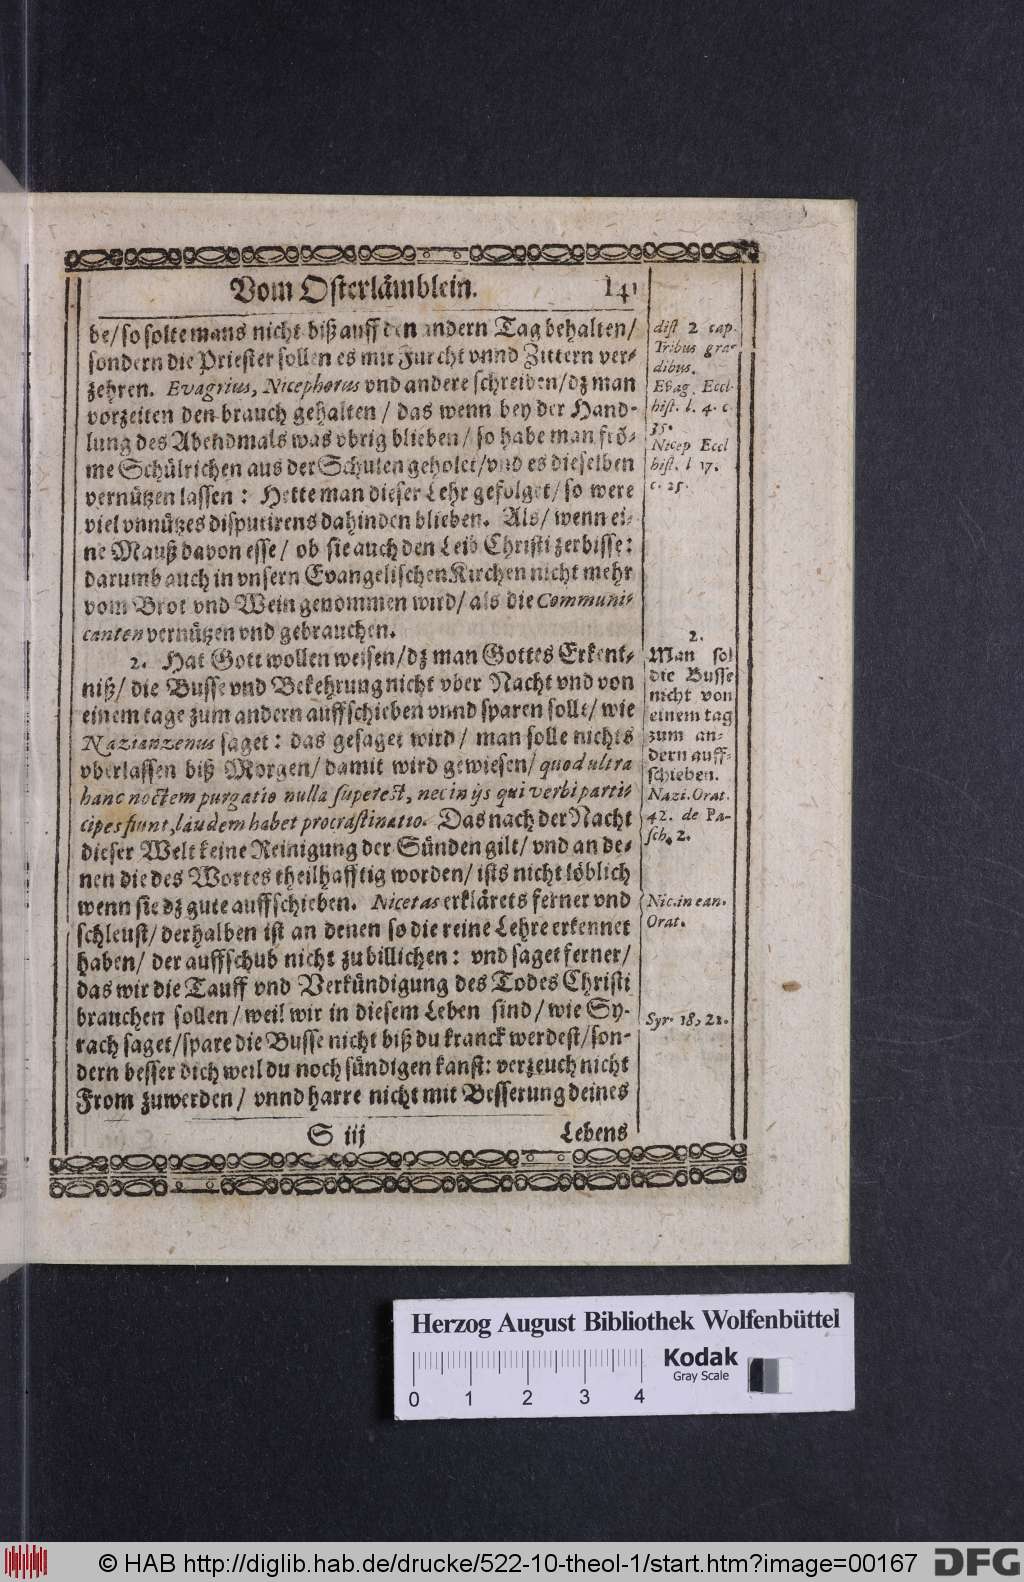 Vom Osterlämblein. 141
be/ so solte mans nicht biß auff den andern Tag behalten/
sondern die Priester sollen es mit Furcht vnnd Zittern ver-
zehren. Evagrius, Nicephorus vnd andere schreiben/ dz man
vorzeiten den brauch gehalten/ das wenn bey der Hand-
lung des Abendmals was vbrig blieben/ so habe man frö-
me Schülrichen aus der Schulen geholet/ vnd es dieselben
vernützen lassen: Hette man dieser Lehr gefolget/ so were
viel vnnützes disputirens dahinden blieben. Als/ wenn ei-
ne Mauß davon esse/ ob sie auch den Leib Christi zerbisse:
darumb auch in vnsern Evangelischen Kirchen nicht mehr
vom Brot vnd Wein genommen wird/ als die Communi-
canten vernützen vnd gebrauchen.
2. Hat Gott wollen weisen/ dz man Gottes Erkent-
niß/ die Busse vnd Bekehrung nicht vber Nacht vnd von
einem tage zum andern auffschieben vnnd sparen sollt/ wie
Nazianzenus saget: das gesaget wird/ man solle nichts
vberlassen biß Morgen/ damit wird gewiesen/ quod ultra
hanc noctem purgatio nulla superest, nec in ijs qui verbi parti-
cipes fiunt, laudem habet procrastinatio. Das nach der Nacht
dieser Welt keine Reinigung der Sünden gilt/ vnd an de-
nen die des Wortes theilhafftig worden/ ists nicht löblich
wenn sie dz gute auffschieben. Nicetas erklärets ferner vnd
schleust/ derhalben ist an denen so die reine Lehre erkennet
haben/ der auffschub nicht zubillichen: vnd saget ferner/
das wir die Tauff vnd Verkündigung des Todes Christi
brauchen sollen/ weil wir in diesem Leben sind/ wie Sy-
rach saget/ spare die Busse nicht biß du kranck werdest/ son-
dern besser dich weil du noch sündigen kanst: verzeuch nicht
From zuwerden/ vnnd harre nicht mit Besserung deines
S iij Lebens
dist 2 cap.
Tribus gra-
dibus.
Evag. Eccl.
hist. l. 4. c.
35.
Nicep Eccl
hist. l 17.
c. 25.
2.
Man sol
die Busse
nicht von
einem tag
zum an-
dern auff-
schieben.
Nazi. Orat.
42. de Pa-
sch. 2.
Nic. in ean.
Orat.
Syr. 18, 22.
Herzog August Bibliothek Wolfenbüttel
Kodak
Gray Scale
0 1 2 3 4
© HAB http://diglib.hab.de/drucke/522-10-theol-1/start.htm?image=00167
DFG